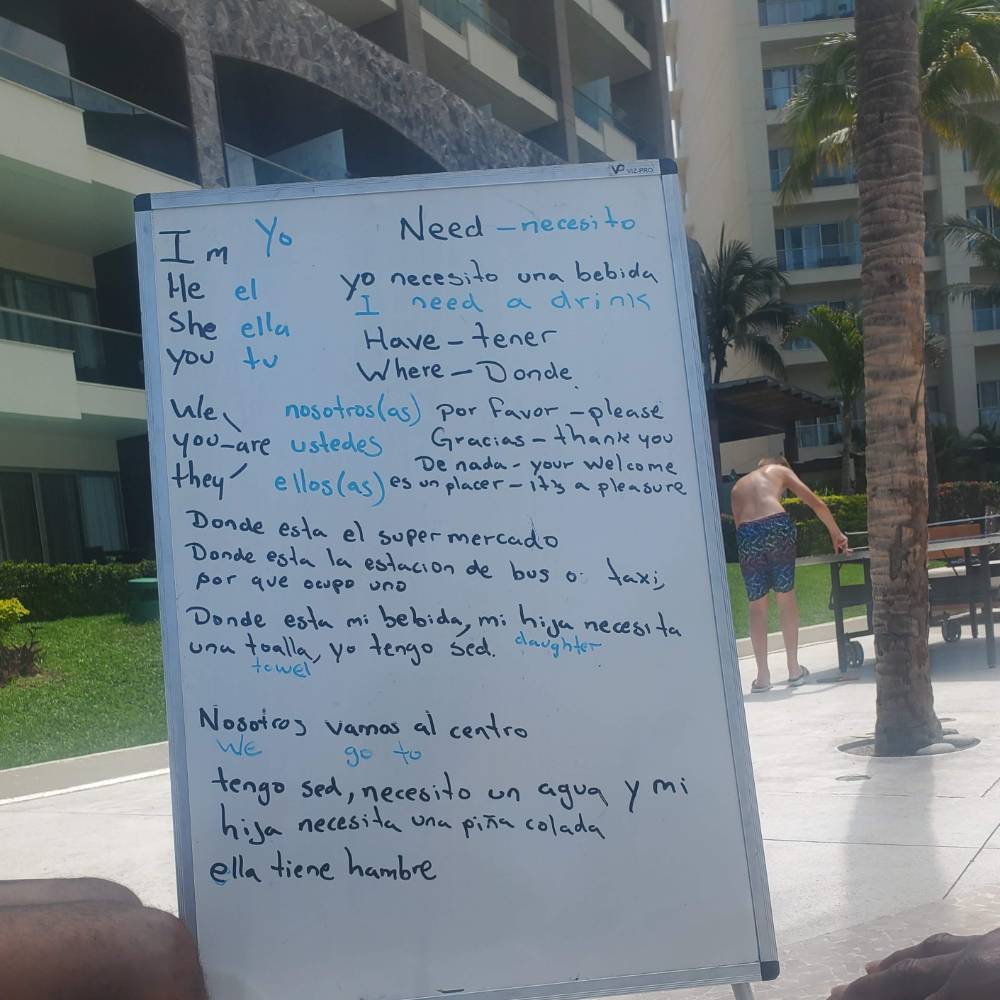 VP VIZ-PRO
Im Yo Need - necesito
He el yo necesito una bebida
I need a drink
She ella Have - tener
you tu Where - Donde
We, nosotros(as) por favor - please
you - are ustedes Gracias - thank you
De nada - your welcome
they ellos(as) es un placer - it's a pleasure
Donde esta el supermercado
Donde esta la estacion de bus o taxi,
por que ocupo uno
Donde esta mi bebida, mi hija necesita
una toalla, yo tengo sed. daughter
towel
Nosotros vamos al centro
We go to
tengo sed, necesito un agua y mi
hija necesita una piña colada
ella tiene hambre